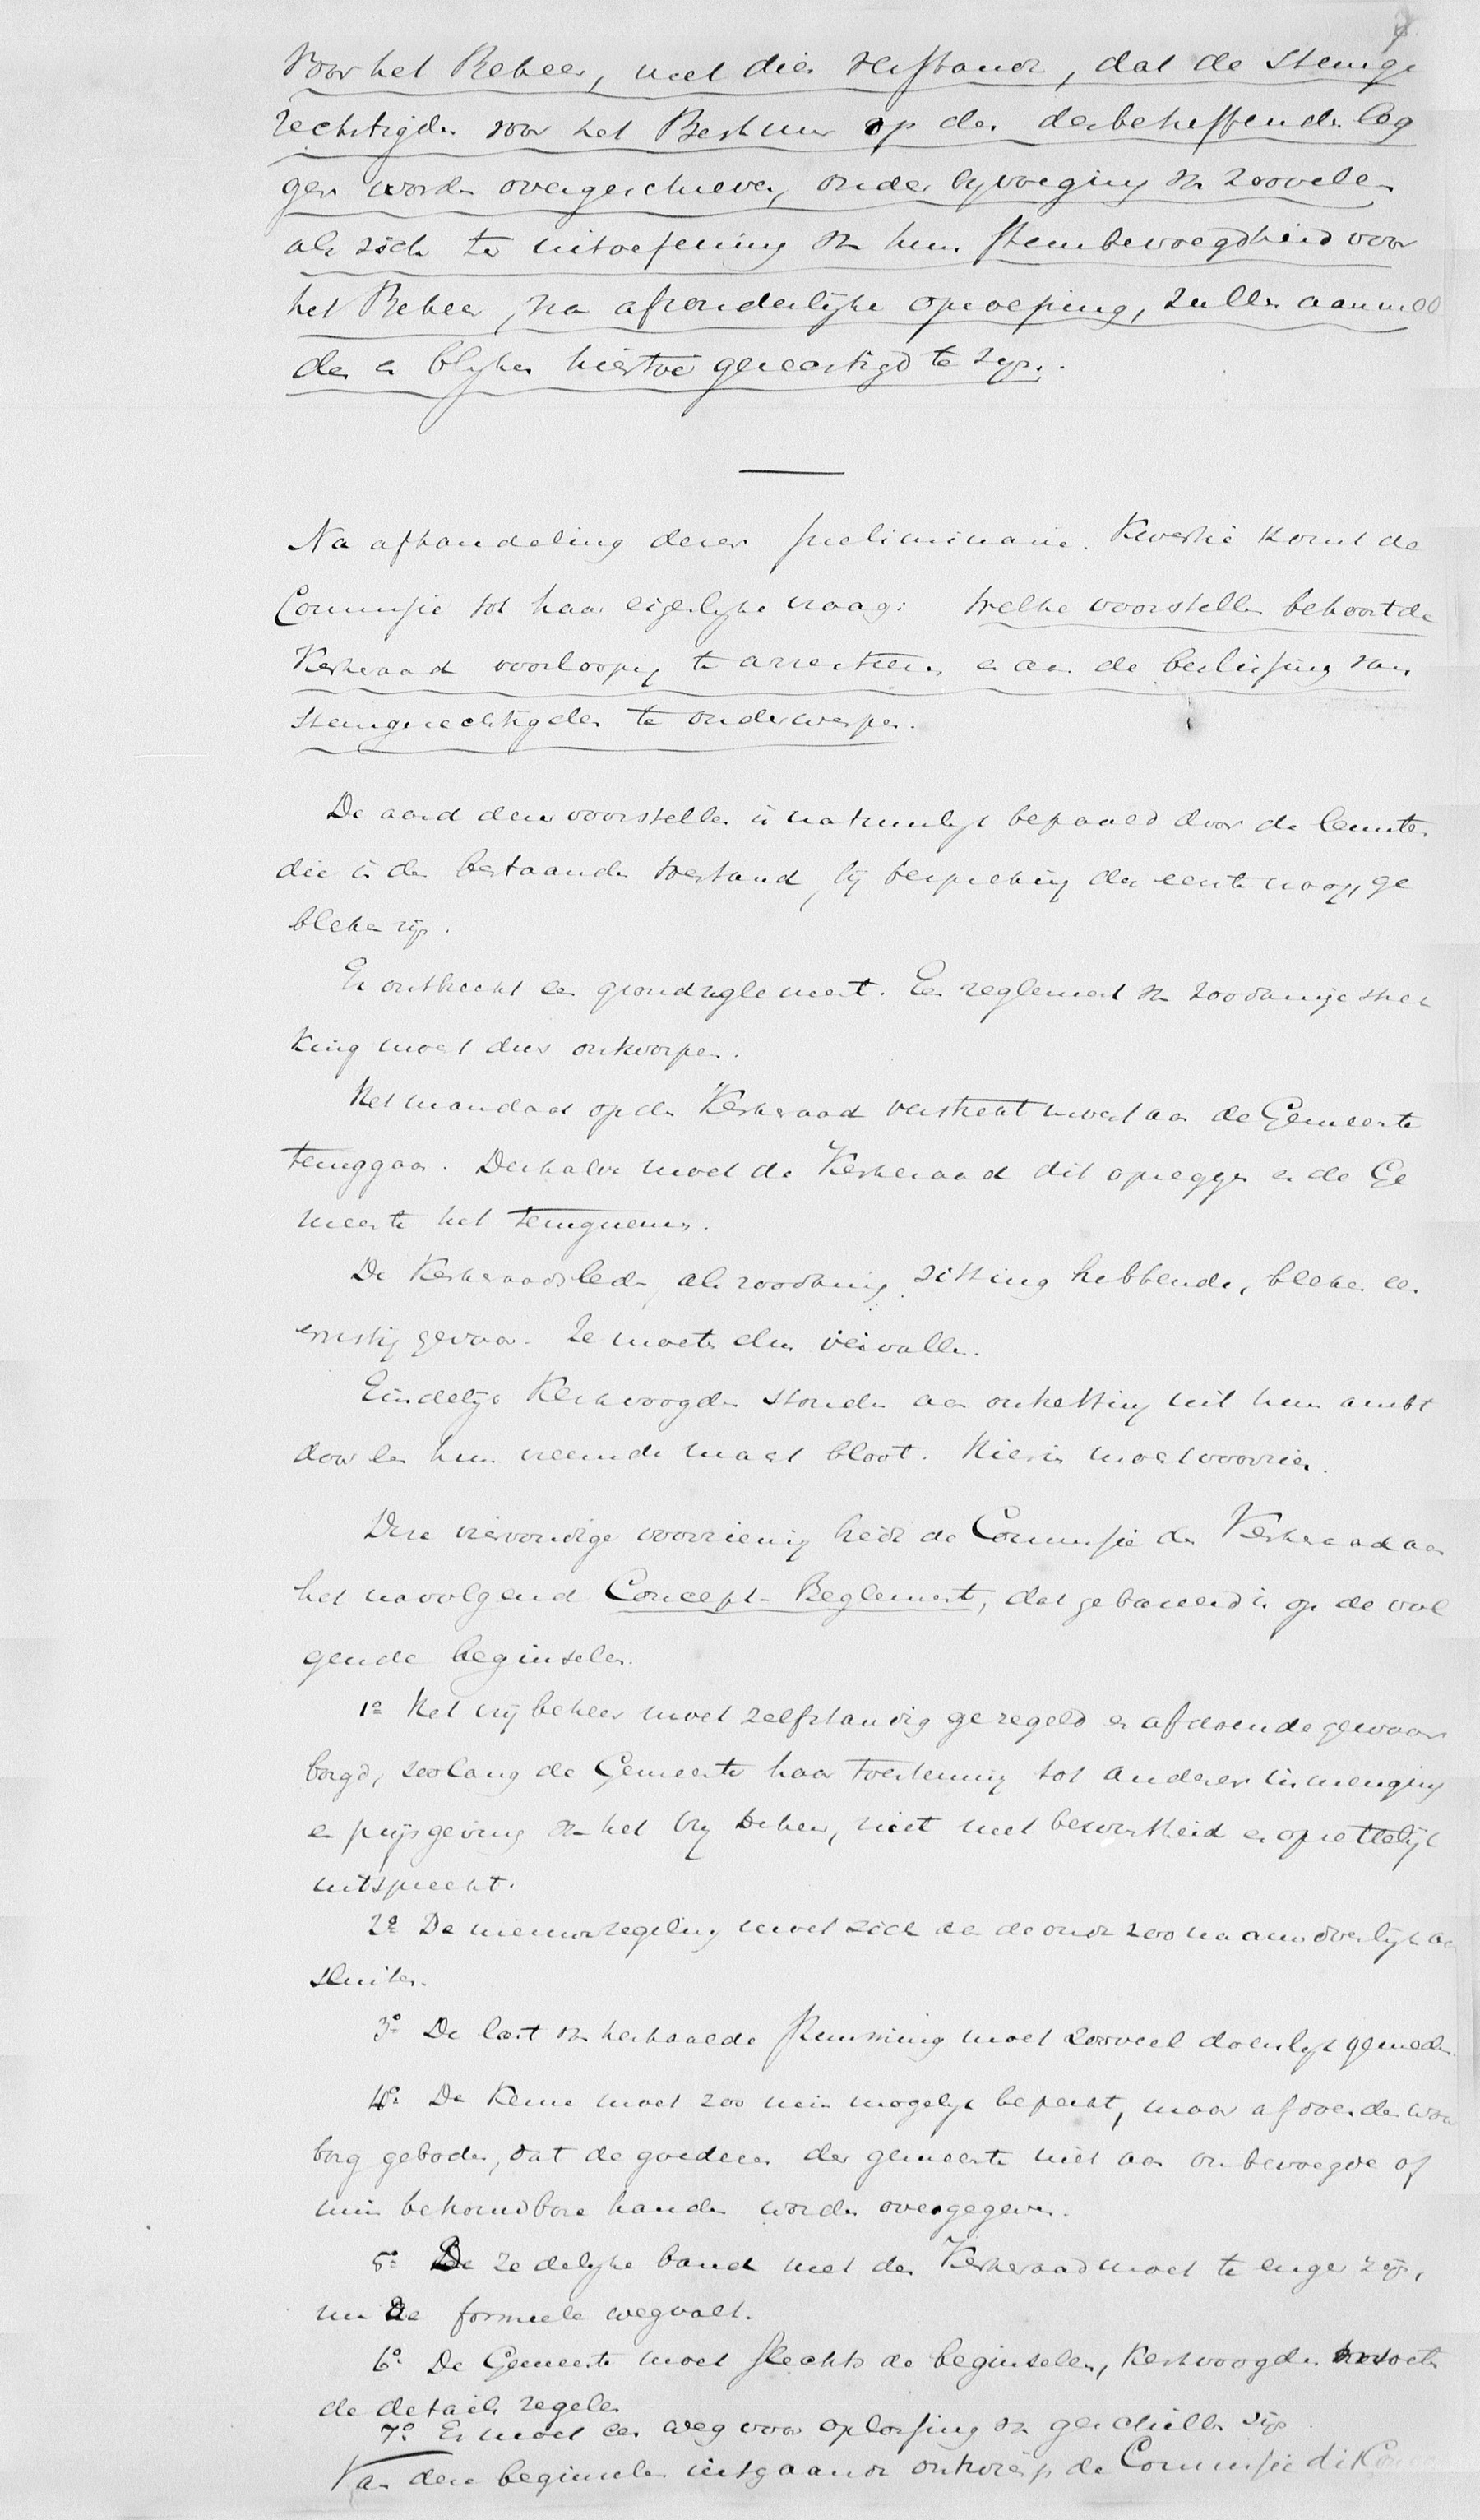 voor het Beheer, met dien verstande, dat de stemge
rechtigden voor het Bestuur op den desbetreffenden leg
ger worden overgeschreven, onder byvoeging van zoovelen
als zich ter uitoefening van hun stembevoegdheid voor
het Beheer, na afzonderlijke oproeping, zullen aanmel
den en blyken hiertoe gerechtigd te zijn.
Na afhandeling dezer preliminaire kwestie komt de
Commissie tot haar eigenlyke vraag: welke voorstellen behoort de
Kerkeraad voorloopig te arresteeren en aan de beslissing van
stemgerechtigden te onderwerpen.
De aard dezer voorstellen is natuurlyk bepaald door de leemten
die in den bestaanden toestand, by bespreking der eerste vraag, ge
bleken zijn.
Er ontbreekt een grondreglement. Een reglement van zoodanige strek
king moet dus ontworpen.
Het mandaat op den Kerkeraad verstrekt moet aan de Gemeente
teruggaan. Derhalve moet de Kerkeraad dit opzeggen en de Ge
meente het terugnemen.
De Kerkeraadsleden, als zoodanig zitting hebbende, bleken een
ernstig gevaar. Ze moeten dus vervallen.
Eindelijk Kerkvoogden stonden aan ontzetting uit hun ambt
door een hun vreemde macht bloot. Hierin moet voorzien.
Deze viervoudige voorziening biedt de Commissie den Kerkeraad aan
het navolgend Concept-Reglement, dat gebaseerd is op de vol
gende beginselen.
1o Het vrij beheer moet zelfstandig geregeld en afdoende gewaar
borgd, zoolang de Gemeente haar toestemming tot anderer inmenging
en prijsgeving van het vrij beheer, niet met bewustheid en opzettelijk
uitspreekt.
2o De nieuwe regeling moet zich aan de oude zoo na aan doenlijk aan
sluiten.
3o De last van herhaalde stemming moet zooveel doenlyk gemeden.
4o De keuze moet zoo min mogelyk beperkt, maar afdoende waar
borg geboden, dat de goederen der gemeente niet aan onbevoegde of
min betrouwbare handen worden overgegeven.
5o De zedelyke band met den Kerkeraad moet te enger zijn,
nu de formeele wegvalt.
6o De Gemeente moet slechts de beginselen, Kerkvoogden moeten
de details regelen
7o Er moet een weg voor oplossing van geschillen zijn.
Van deze beginselen uitgaande ontwierp de Commissie dit